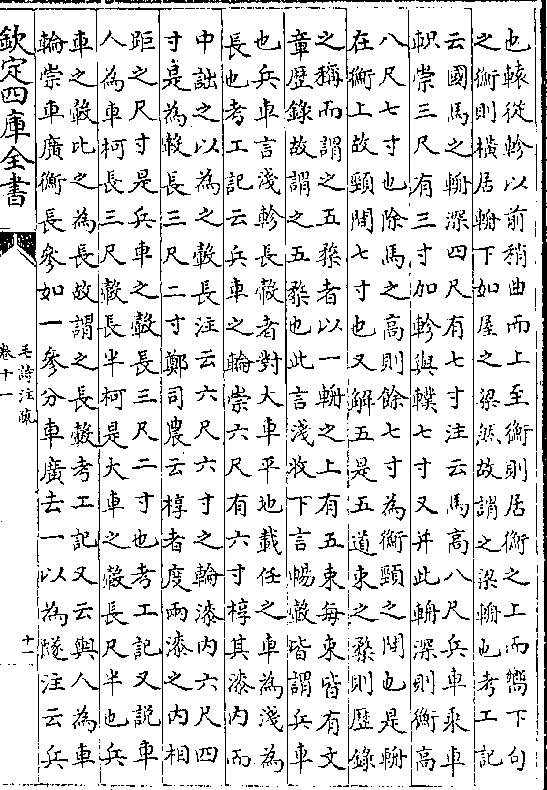 也轅從軫以前稍曲而上至衡則居衡之上而嚮下句
之衡則橫居輈下如屋之梁然故謂之梁輈也考工記
云國馬之輈深四尺有七寸注云馬高八尺兵車乘車
軹崇三尺有三寸加軫與轐七寸又并此輈深則衡高
八尺七寸也除馬之高則餘七寸為衡頸之間也是輈
在衡上故頸間七寸也又解五是五道束之楘則歷錄
之稱而謂之五楘者以一輈之上有五束每束皆有文
章歷錄故謂之五楘也此言淺收下言暢轂皆謂兵車
也兵車言淺軫長轂者對大車平地載任之車為淺為
長也考工記云兵車之輪崇六尺有六寸椁其漆內而
中詘之以為之轂長注云六尺六寸之輪漆內六尺四
寸是為轂長三尺二寸鄭司農云椁者度兩漆之內相
距之尺寸是兵車之轂長三尺二寸也考工記又說車
人為車柯長三尺轂長半柯是大車之轂長尺半也兵
車之轂比之為長故謂之長轂考工記又云輿人為車
輪崇車廣衡長參如一參分車廣去一以為隧注云兵
欽定四庫全書
毛詩注疏
卷十一
十一